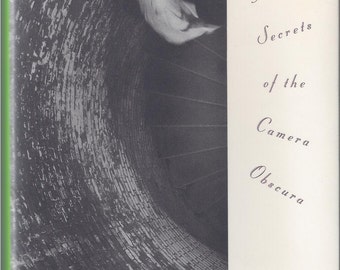 Secrets
of the
Camera
Obscura